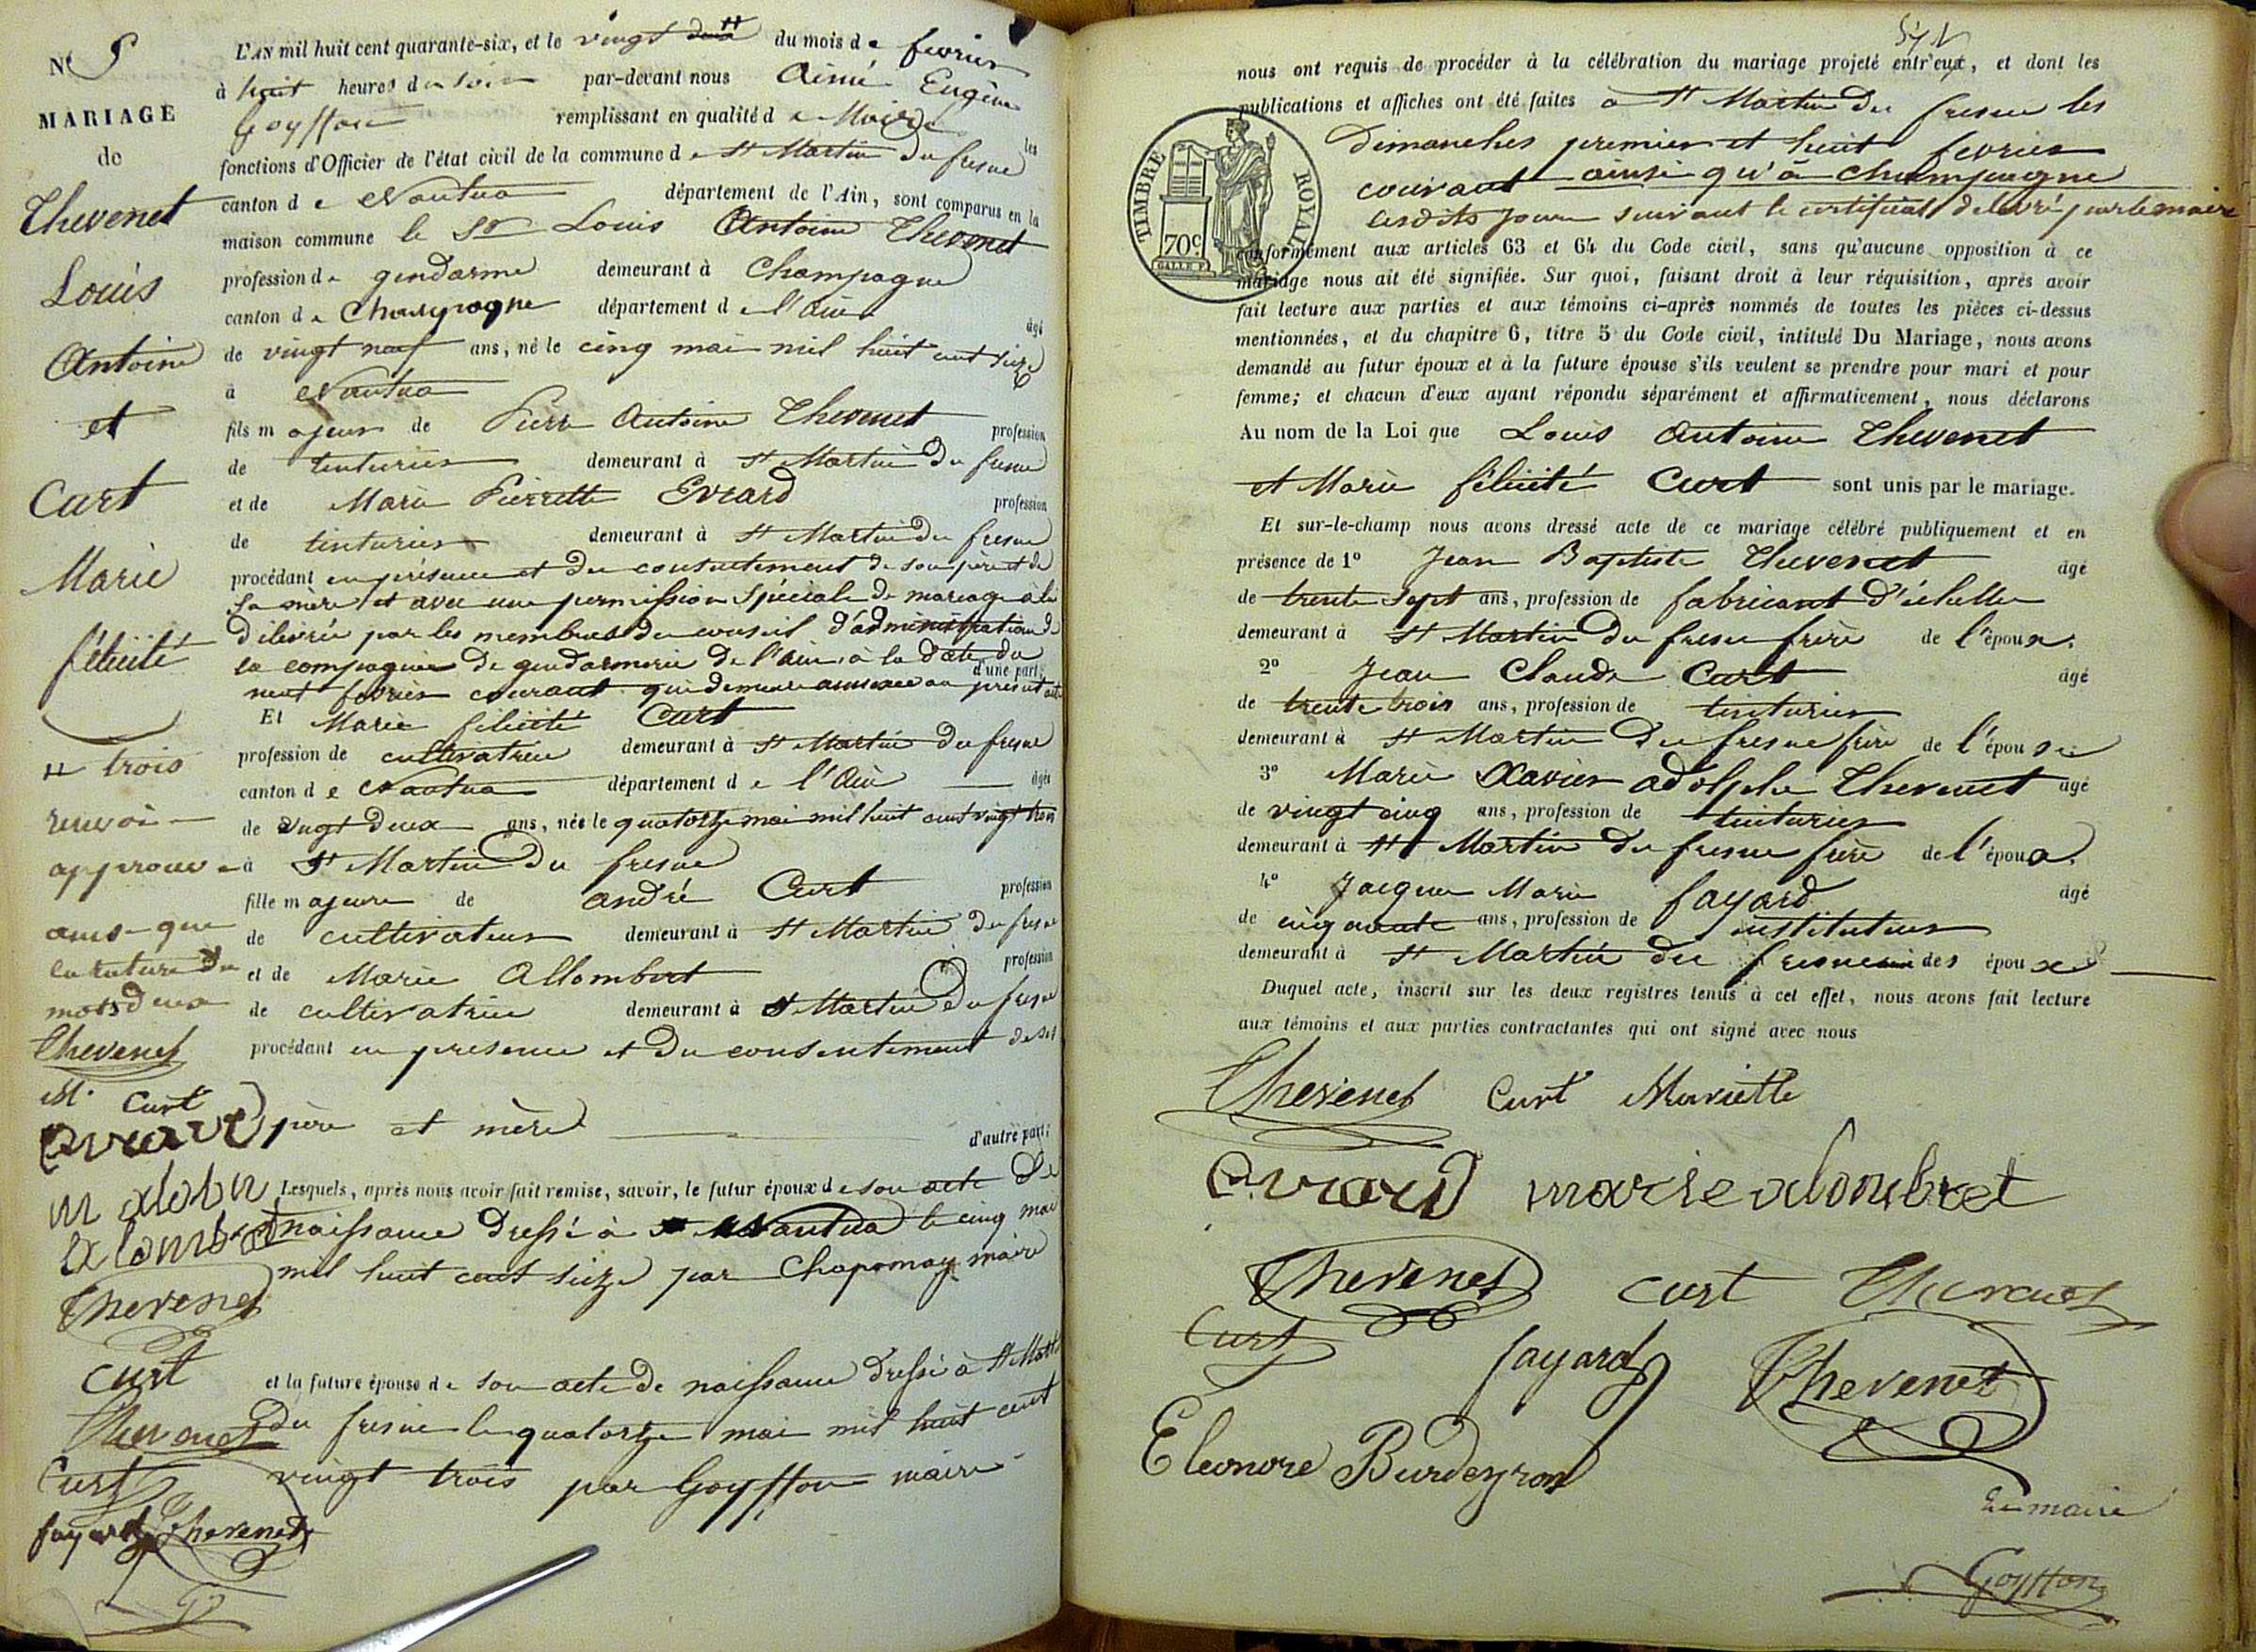 N° 5
MARIAGE
de
Thevenet
Louis
Antoine
et
Curt
Marie
félicité
H trois
renvoi
approuvé
ainsi que
la rature du
mots deux
Thevenet
M. Curt
Evrard
m alobn
alombret
Thevenet
Curt
Thevenet
Curt
fayard Thevenet
L'AN mil huit cent quarante-six, et le vingt deux H du mois de fevrier
à huit heures du soir par-devant nous Aimé Eugène
Goyffon remplissant en qualité de Maire les
fonctions d'Officier de l'état civil de la commune de St Martin du fresne
canton de Nantua département de l'Ain, sont comparus en la
maison commune le Sr Louis Antoine Thevenet
profession de gendarme demeurant à Champagne
canton de Champagne département de l'Ain
âgé
de vingt neuf ans, né le cinq mai mil huit cent seize
à Nantua
fils majeur de Pierre Antoine Thevenet profession
de teinturier demeurant à St Martin du fresne
et de Marie Pierrette Evrard profession
de teinturier demeurant à St Martin du fresne
procédant en présence et du consentement de son père et de
sa mère et avec une permission spéciale de mariage à lui
délivrée par les membres du conseil d'administration de
la compagnie de gendarmerie de l'ain, à la date du
d'une part;
neuf fevrier courant qui demeure annexée au présent acte
Et Marie félicité Curt
profession de cultivatrice demeurant à St Martin du fresne
canton de Nantua département de l'Ain âgée
de vingt deux ans, née le quatorze mai mil huit cent vingt trois
à St Martin du fresne
fille majeure de andré Curt profession
de cultivateur demeurant à St Martin du fresne
et de Marie Allombert profession
de cultivatrice demeurant à St Martin du fresne
procédant en presence et du consentement de ses
père et mère
d'autre part;
Lesquels, après nous avoir fait remise, savoir, le futur époux de son acte de
naissance dressé à Nantua le cinq mai
mil huit cent seize par Chapornay maire
et la future épouse de son acte de naissance dressé à St Martin
du fresne le quatorze mai mil huit cent
vingt trois par Goyffon maire
nous ont requis de procéder à la célébration du mariage projeté entr'eux, et dont les
publications et affiches ont été faites à St Martin du fresne les
dimanches premier et huit fevrier
courant ainsi qu'à champagne
lesdits jours suivant le certificat délivré par le maire
TIMBRE ROYAL
70c.
GALLE F.
conformément aux articles 63 et 64 du Code civil, sans qu'aucune opposition à ce
mariage nous ait été signifiée. Sur quoi, faisant droit à leur réquisition, après avoir
fait lecture aux parties et aux témoins ci-après nommés de toutes les pièces ci-dessus
mentionnées, et du chapitre 6, titre 5 du Code civil, intitulé Du Mariage, nous avons
demandé au futur époux et à la future épouse s'ils veulent se prendre pour mari et pour
femme; et chacun d'eux ayant répondu séparément et affirmativement, nous déclarons
Au nom de la Loi que Louis Antoine Thevenet
et Marie félicité Curt sont unis par le mariage.
Et sur-le-champ nous avons dressé acte de ce mariage célébré publiquement et en
présence de 1° Jean Baptiste Thevenet âgé
de trente sept ans, profession de fabricant d'échelle
demeurant à St Martin du fresne frère de l'époux.
2° Jean Claude Curt âgé
de trente trois ans, profession de teinturier
demeurant à St Martin du fresne frère de l'épouse
3° Marie Xavier adolphe Thevenet âgé
de vingt cinq ans, profession de teinturier
demeurant à St Martin du fresne frère de l'époux.
4° Jacques Marie fayard âgé
de cinquante ans, profession de instituteur
demeurant à St Martin du fresne ami des époux
Duquel acte, inscrit sur les deux registres tenus à cet effet, nous avons fait lecture
aux témoins et aux parties contractantes qui ont signé avec nous
Thevenet Curt Mariette
Evrard marie alombret
Thevenet curt Thevenet
Curt fayard Thevenet
Eleonore Burdeyron
Le maire
Goyffon